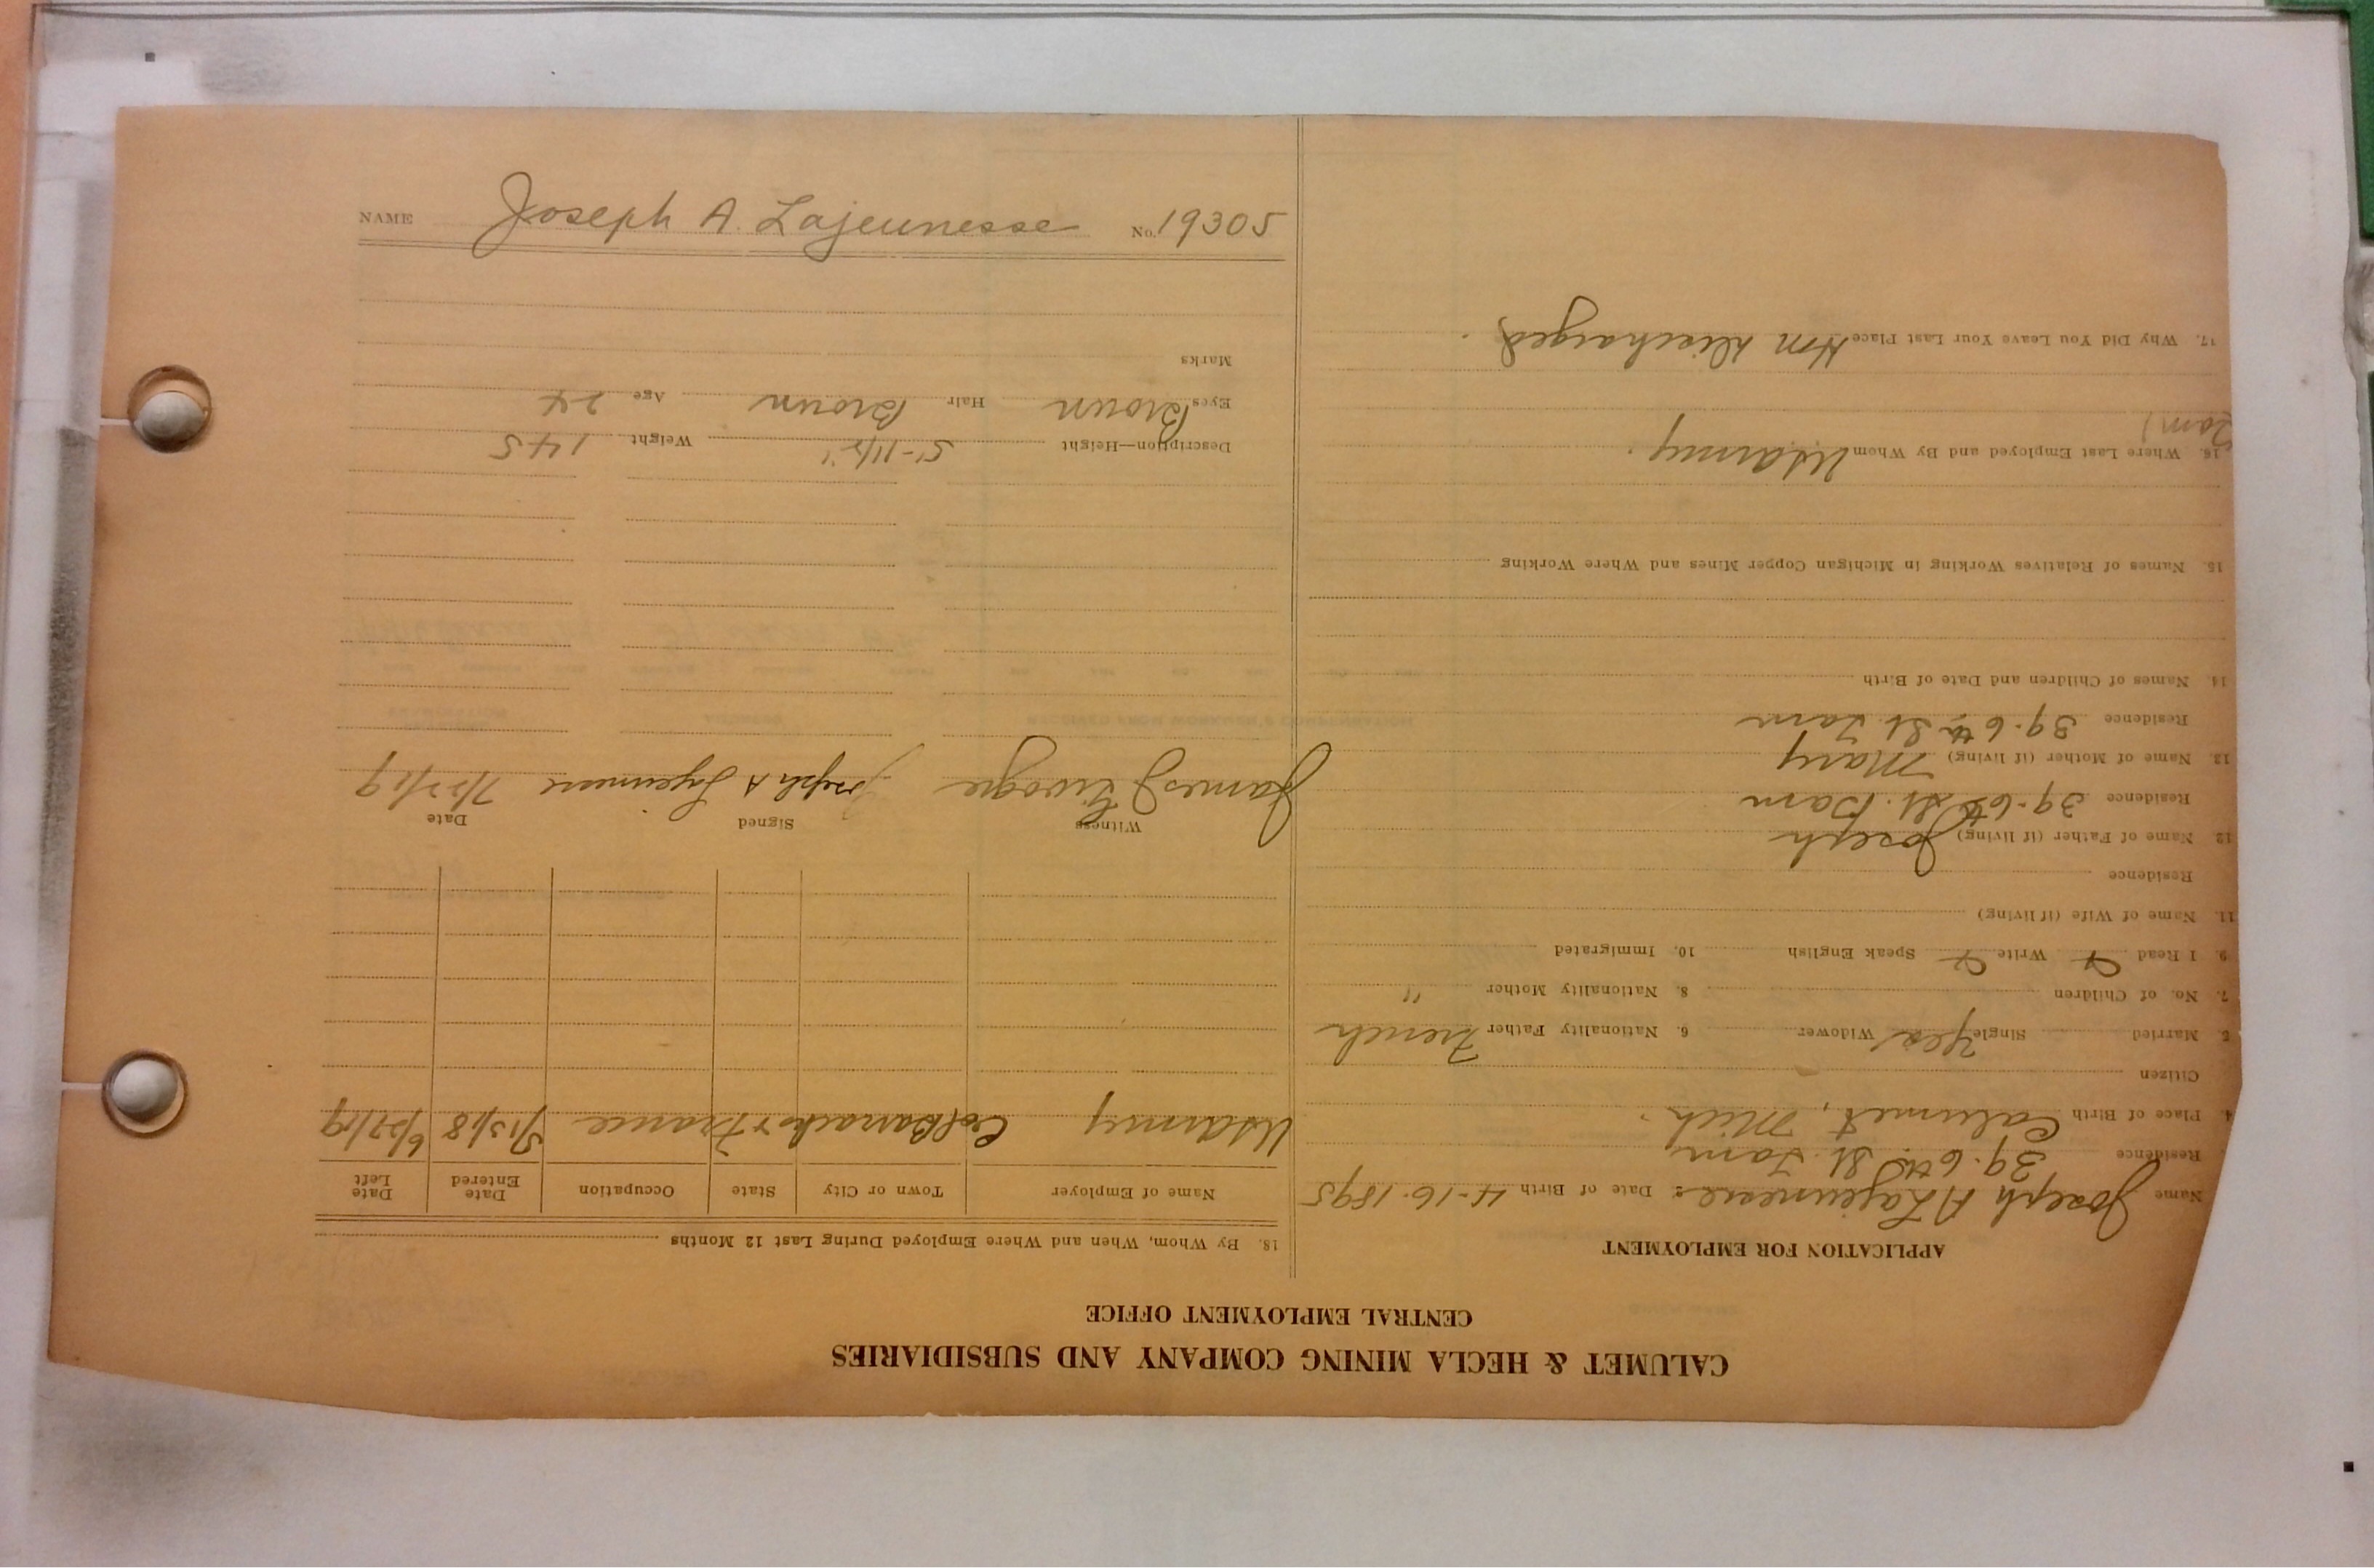 CALUMET & HECLA MINING COMPANY AND SUBSIDIARIES
CENTRAL EMPLOYMENT OFFICE
APPLICATION FOR EMPLOYMENT
Name Joseph A Lajeunesse Date of Birth 4-16-1895
Residence 39-6th St. Tam
4. Place of Birth Calumet, Mich.
Citizen
5. Married Single Yes Widower 6. Nationality Father French
7. No. of Children 8. Nationality Mother "
9. I Read Write Speak English 10. Immigrated
11. Name of Wife (if living)
Residence
12. Name of Father (if living) Joseph
Residence 39-6th St.
13. Name of Mother (if living) Mary
Residence 39-6th St Tam
14. Names of Children and Date of Birth
15. Names of Relatives Working in Michigan Copper Mines and Where Working
16. Where Last Employed and By Whom US Army.
17. Why Did You Leave Your Last Place Hon discharged.
18. By Whom, When and Where Employed During Last 12 Months
Name of Employer Town or City State Occupation Date Entered Date Left
US Army Col Barracks & France 5/13/18 6/27/19
Witness Signed Date
James Joseph A Lajeunesse 7/22/19
Description—Height 5'-11½" Weight 145
Eyes Brown Hair Brown Age 24
Marks
NAME Joseph A. Lajeunesse No. 19305